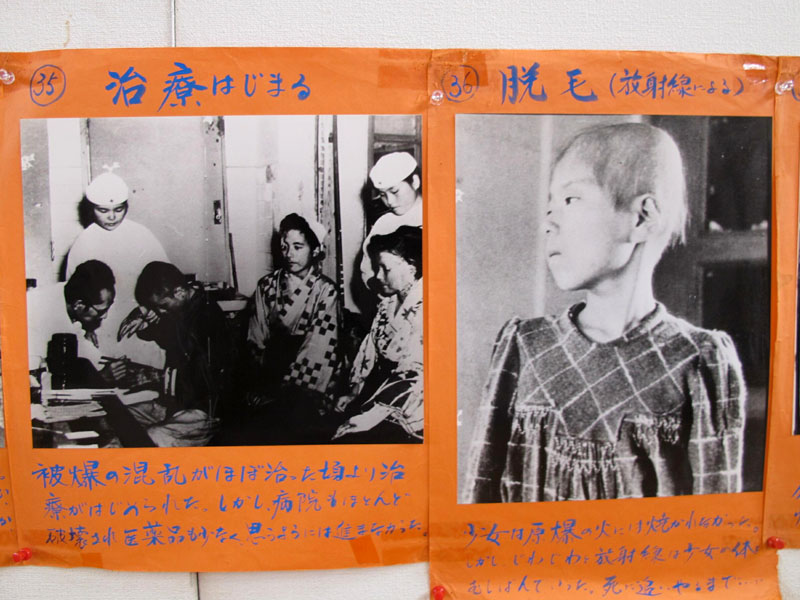 ㉟ 治療はじまる
被爆の混乱がほぼ治った頃より治
療がはじめられた。しかし、病院もほとんど
破壊され医薬品も少なく思うようには進まなかった。
㊱ 脱毛(放射線による)
少女は原爆の火には焼かれなかった。
しかし、じわじわと放射線は少女の体を
むしばんでいった。死に追いやるまで……